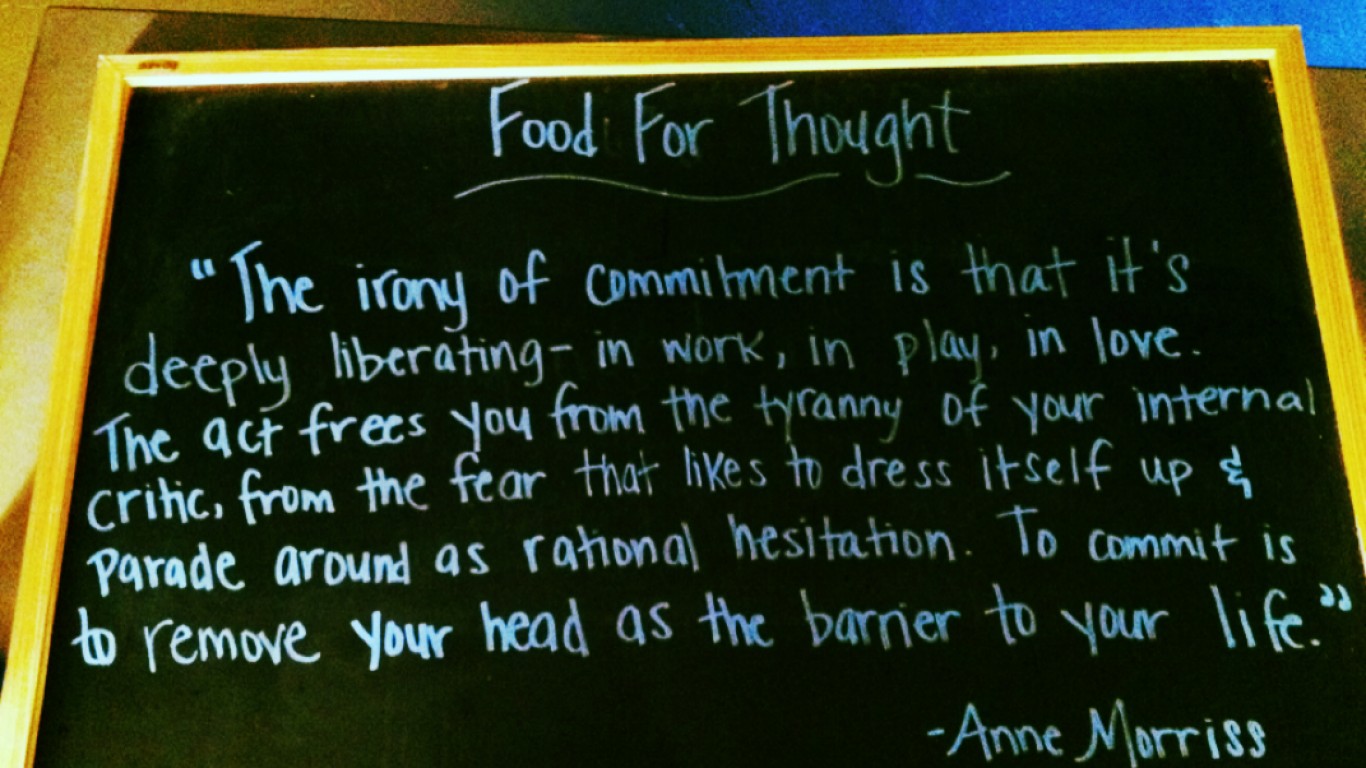 Food For Thought
"The irony of commitment is that it's
deeply liberating- in work, in play, in love.
The act frees you from the tyranny of your internal
critic, from the fear that likes to dress itself up &
parade around as rational hesitation. To commit is
to remove your head as the barrier to your life."
-Anne Morriss